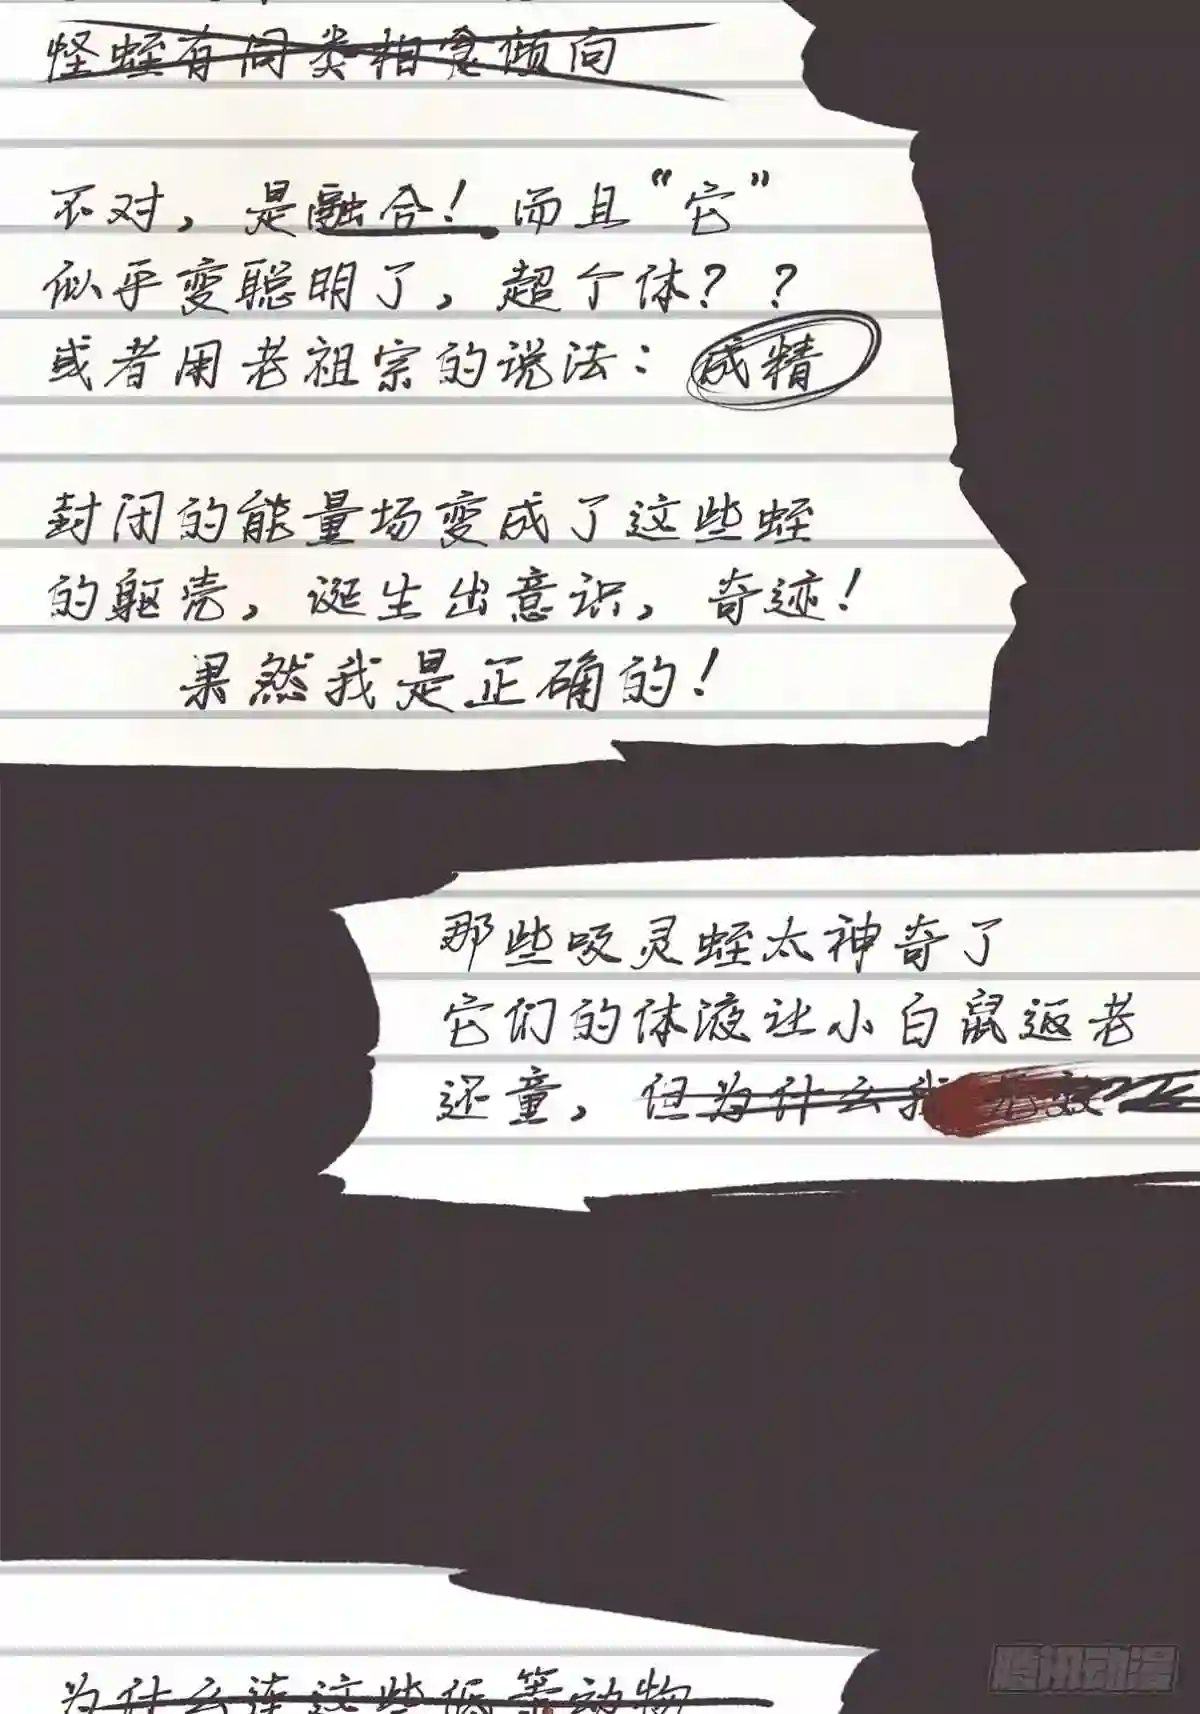 怪蛭有同类相食倾向
不对，是融合！而且“它”
似乎变聪明了，超个体？？
或者用老祖宗的说法：成精
封闭的能量场变成了这些蛭
的躯壳，诞生出意识，奇迹！
果然我是正确的！
那些咬灵蛭太神奇了
它们的体液让小白鼠返老
还童，但为什么我
为什么连这些低等动物
腾讯动漫